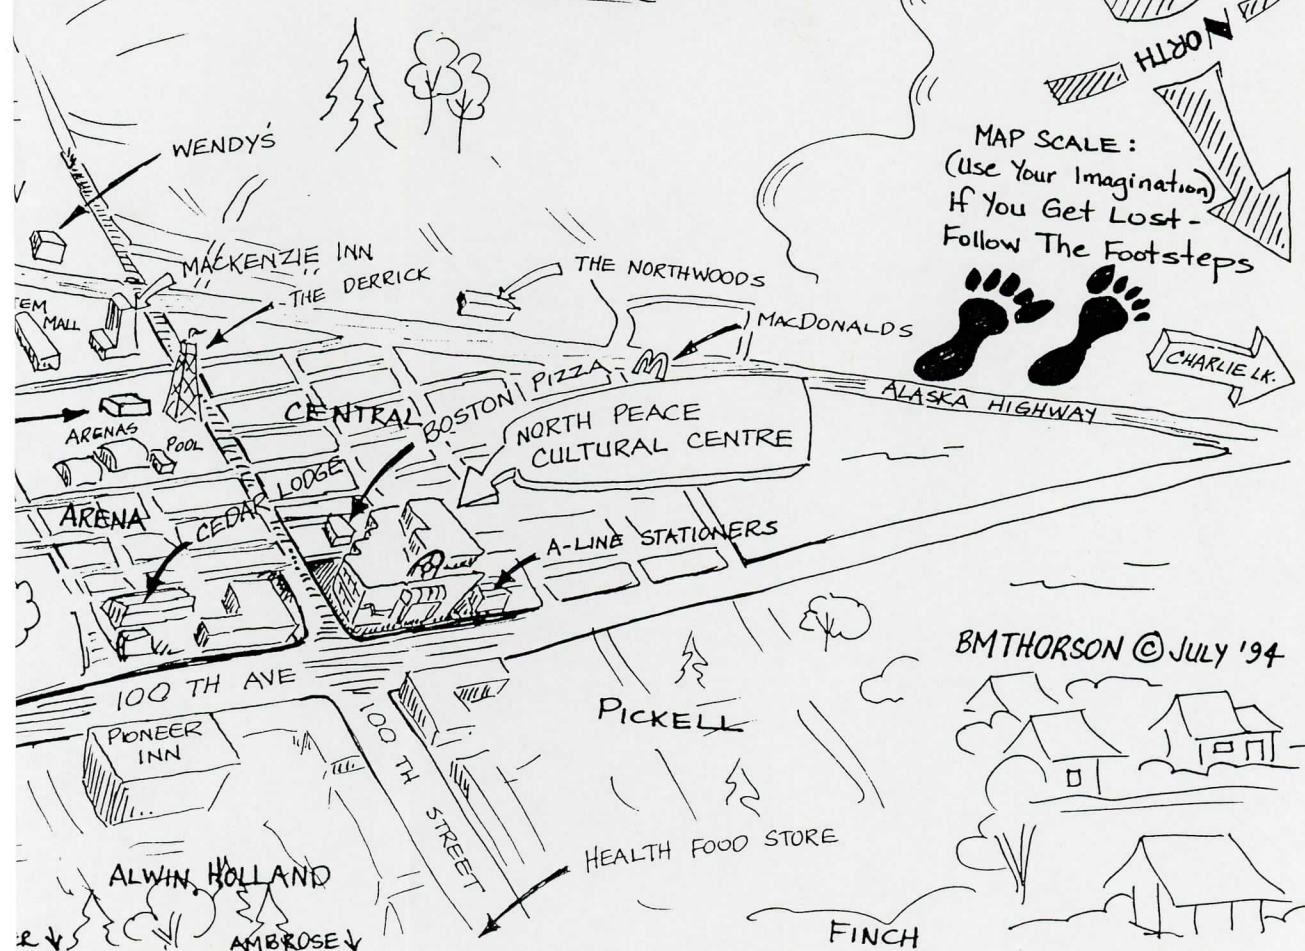 NORTH
MAP SCALE:
(Use Your Imagination)
If You Get Lost-
Follow The Footsteps
WENDY'S
MACKENZIE INN
THE DERRICK
THE NORTHWOODS
MACDONALDS
CHARLIE LK.
ALASKA HIGHWAY
MALL
BOSTON PIZZA
NORTH PEACE
CULTURAL CENTRE
CENTRAL
ARENAS
POOL
ARENA
CEDAR LODGE
A-LINE STATIONERS
BMTHORSON © JULY '94
100 TH AVE
100 TH STREET
PIONEER
INN
PICKELL
HEALTH FOOD STORE
ALWIN HOLLAND
AMBROSE
FINCH